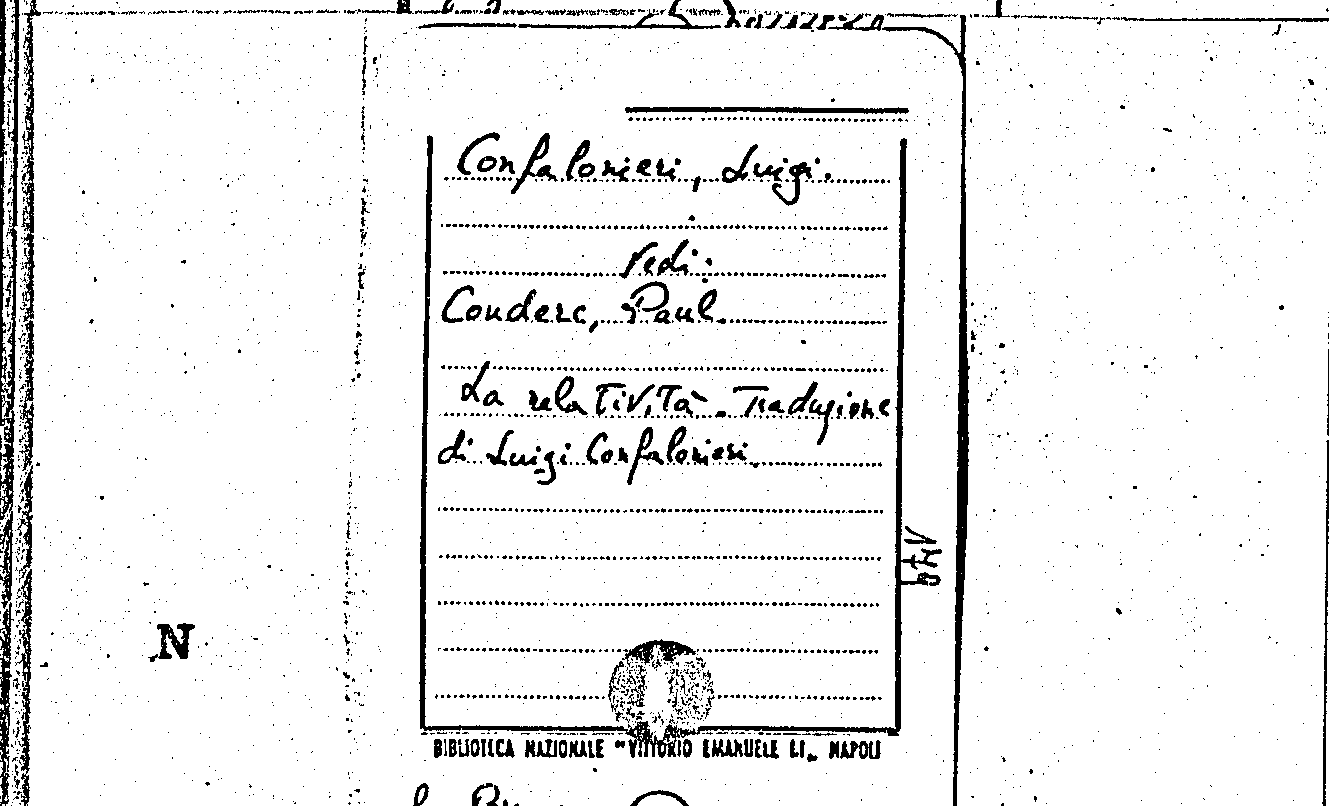 Confalonieri, Luigi.
Vedi:
Couderc, Paul.
La relatività. Traduzione
di Luigi Confalonieri.
N
BIBLIOTECA NAZIONALE "VITTORIO EMANUELE III„ NAPOLI